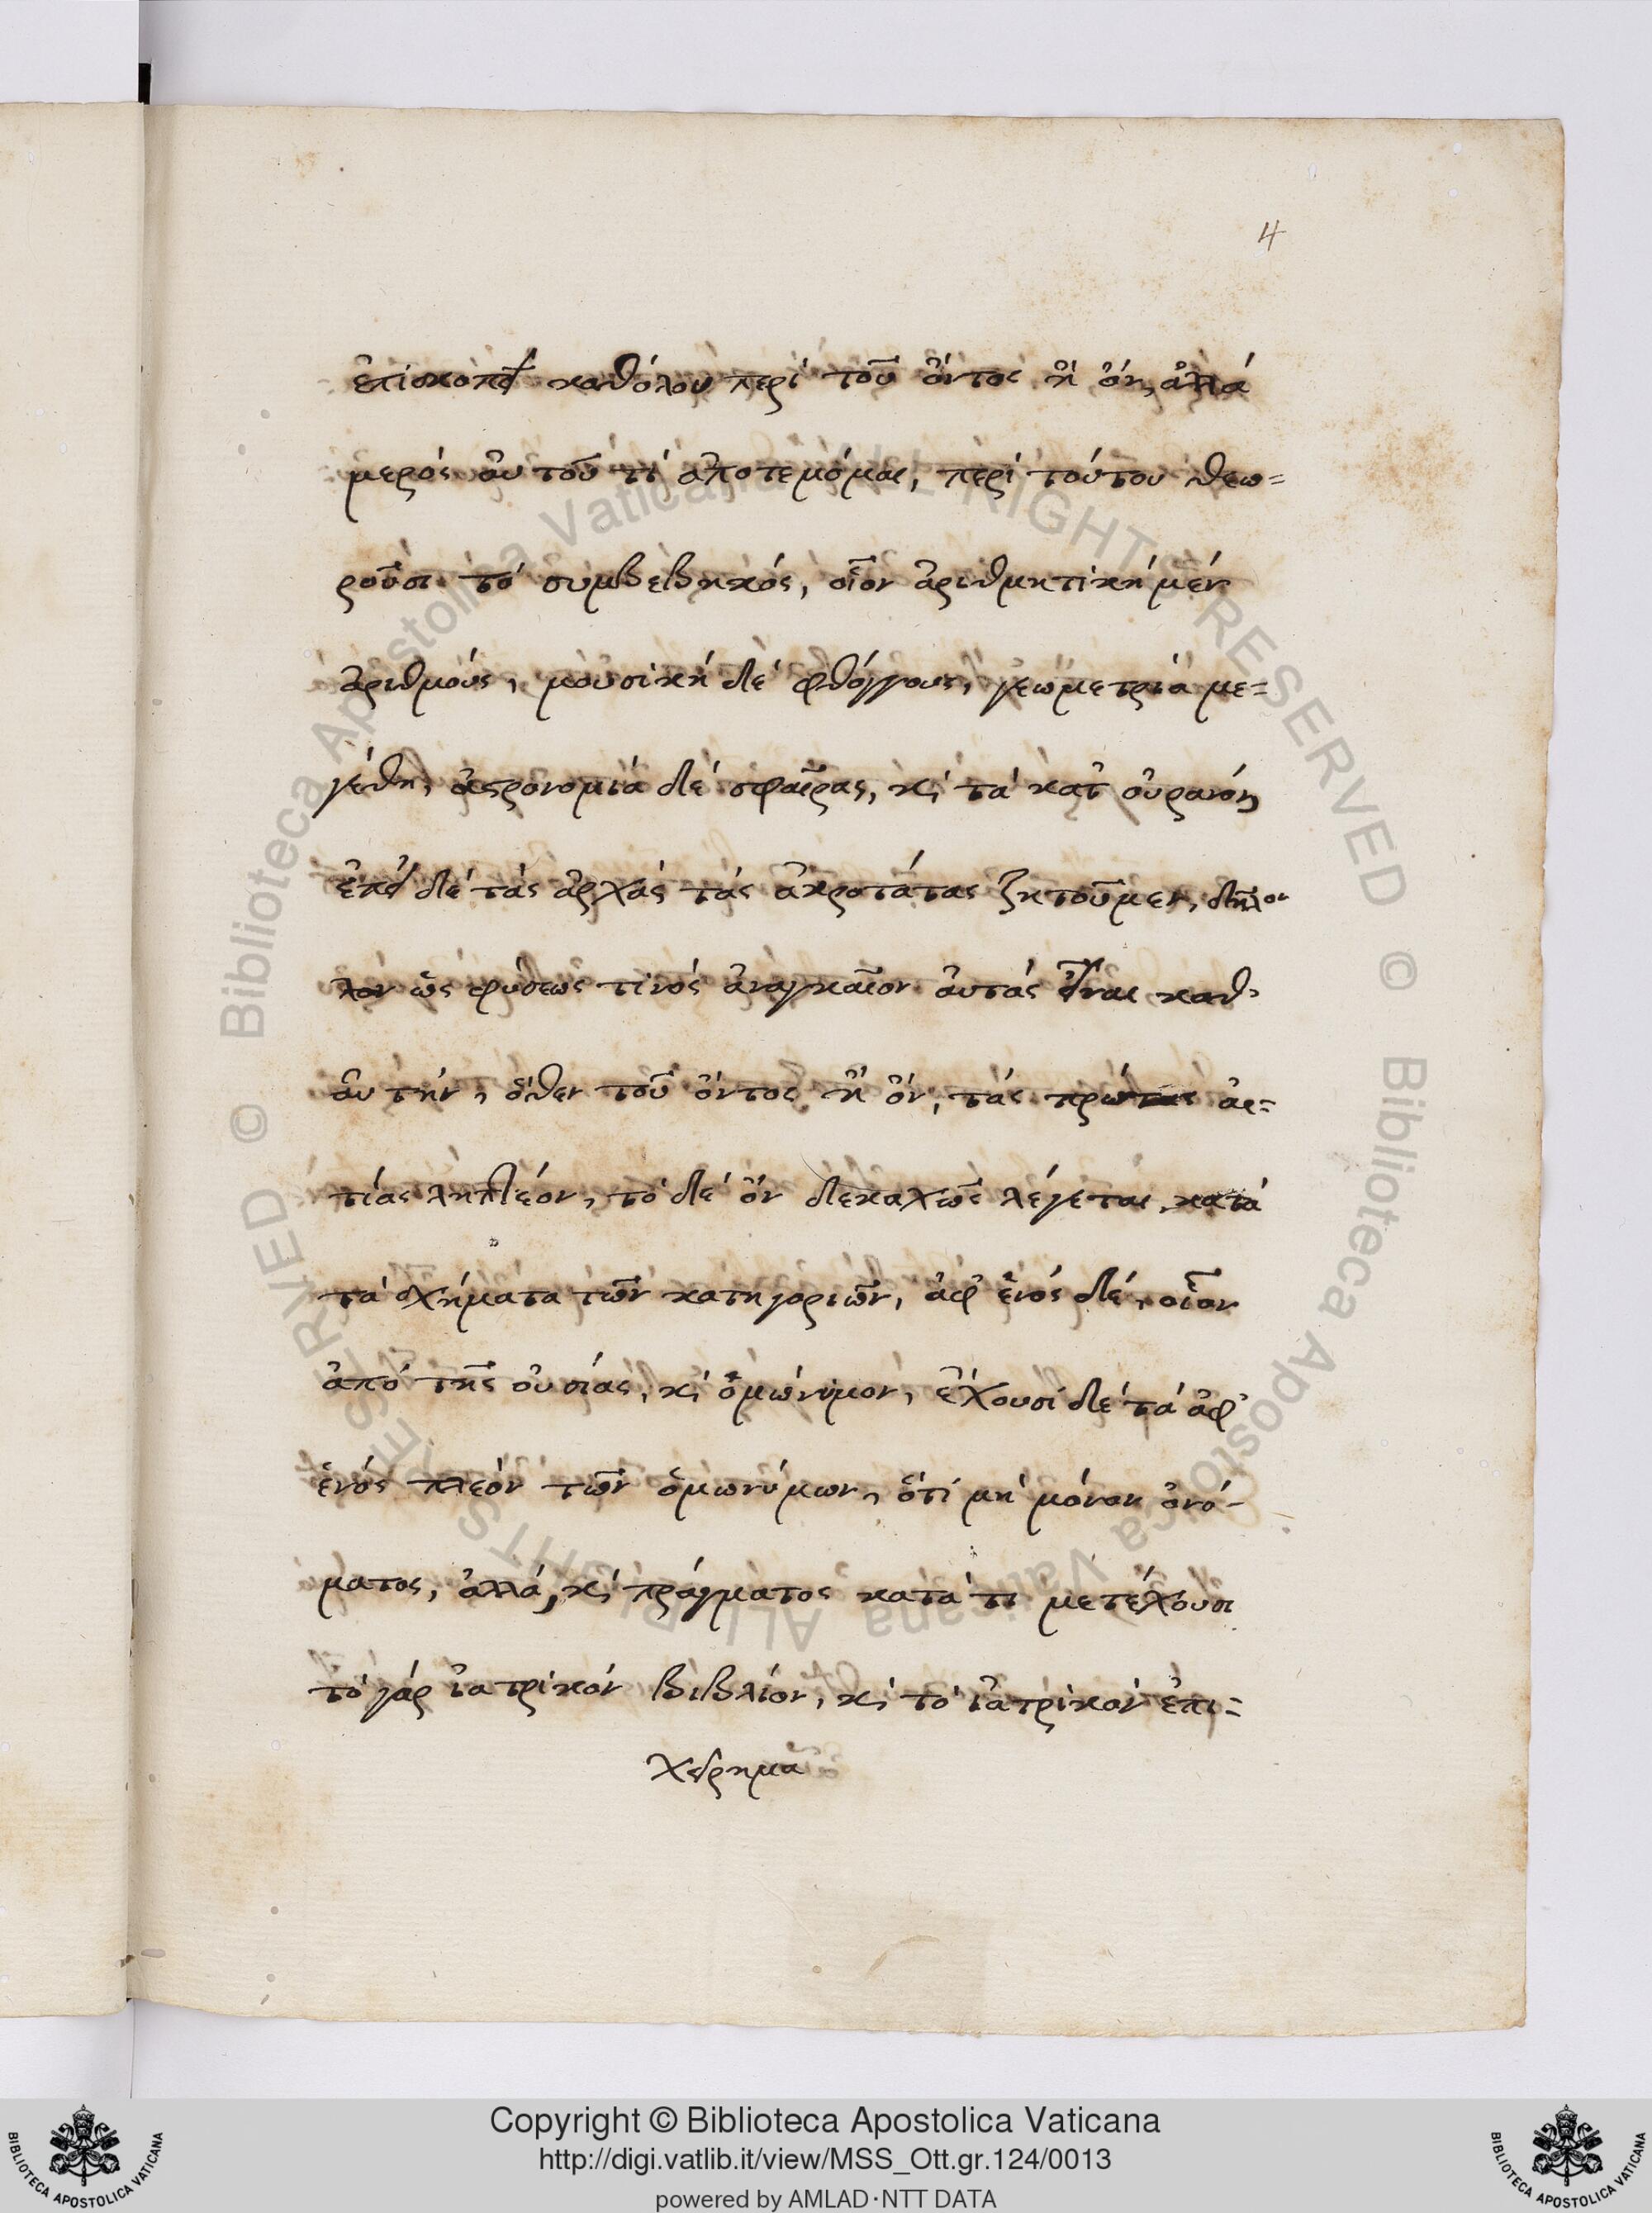 4
ἐπισκοπεῖ καθόλου περὶ τοῦ ὄντος ᾗ ὄν, ἀλλά
μερός αὐτοῦ τί ἀποτεμόμαι, περί τούτου θεω=
ροῦσι τό συμβεβηκός, οἷον ἀριθμητική μέν
ἀριθμούς, μουσική δέ φθόγγους, γεωμετρία με=
γέθη, ἀστρονομία δέ σφαῖρας, κ τά κατ οὐρανόν
ἐπεί δέ τάς ἀρχάς τάς ἀκροτάτας ζητοῦμεν, δῆλον
λον ὡς φύσεως τινός ἀναγκαῖον αὐτάς εἶναι καθ
αὐτήν, ὅθεν τοῦ ὄντος ᾗ ὄν, τάς πρώτας αἰ=
τίας ληπτέον, τό δέ ὄν δεκαχῶς λέγεται, κατά
τά σχήματα τῶν κατηγοριῶν, ἀφ ἑνός δέ, οἷον
ἀπό τῆς οὐσίας, κ ὁμώνυμον, ἔχουσί δέ τά ἀφ
ἑνός πλεόν τῶν ὁμωνύμων, ὅτι μή μόνον ὀνό-
ματος, ἀλλά, κ πράγματος κατά τι μετέχουσι
τό γάρ ἰατρικόν βιβλίον, κ τό ἰατρικόν ἐπι=
χείρημα
Copyright © Biblioteca Apostolica Vaticana
http://digi.vatlib.it/view/MSS_Ott.gr.124/0013
powered by AMLAD·NTT DATA
BIBLIOTECA APOSTOLICA VATICANA
BIBLIOTECA APOSTOLICA VATICANA
© Biblioteca Apostolica Vaticana ALL RIGHTS RESERVED © Biblioteca Apostolica Vaticana ALL RIGHTS RESERVED